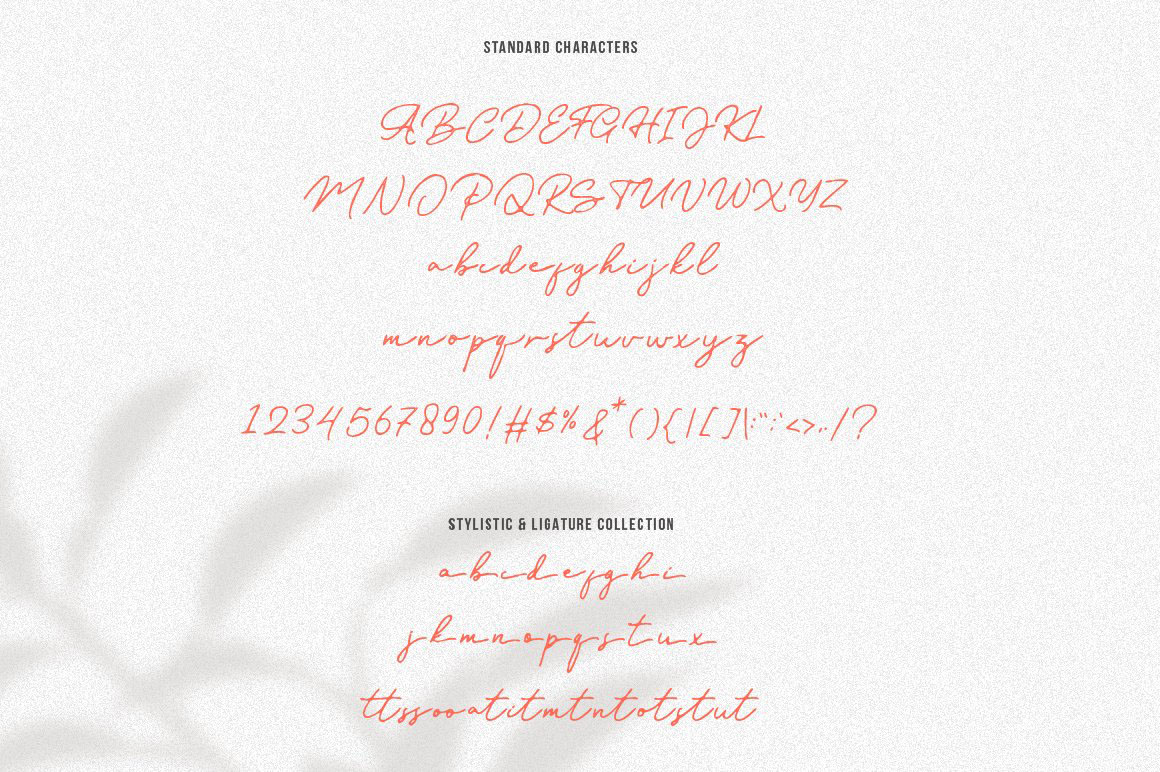 STANDARD CHARACTERS
ABCDEFGHIJKL
MNOPQRSTUVWXYZ
abcdefghijkl
mnopqrstuvwxyz
1234567890!#$%&*(){|[]\:“;‘<>,./?
STYLISTIC & LIGATURE COLLECTION
abcdefghi
jkmnopqstux
ttssooatitmtntotstut